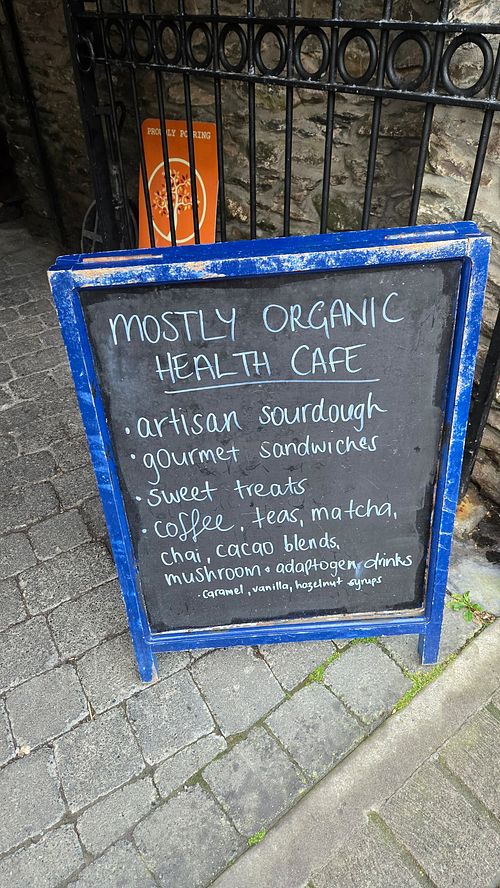 PROUDLY POURING
MOSTLY ORGANIC
HEALTH CAFE
• artisan sourdough
• gourmet sandwiches
• sweet treats
• coffee, teas, matcha,
chai, cacao blends,
mushroom + adaptogen drinks
• caramel, vanilla, hazelnut syrups